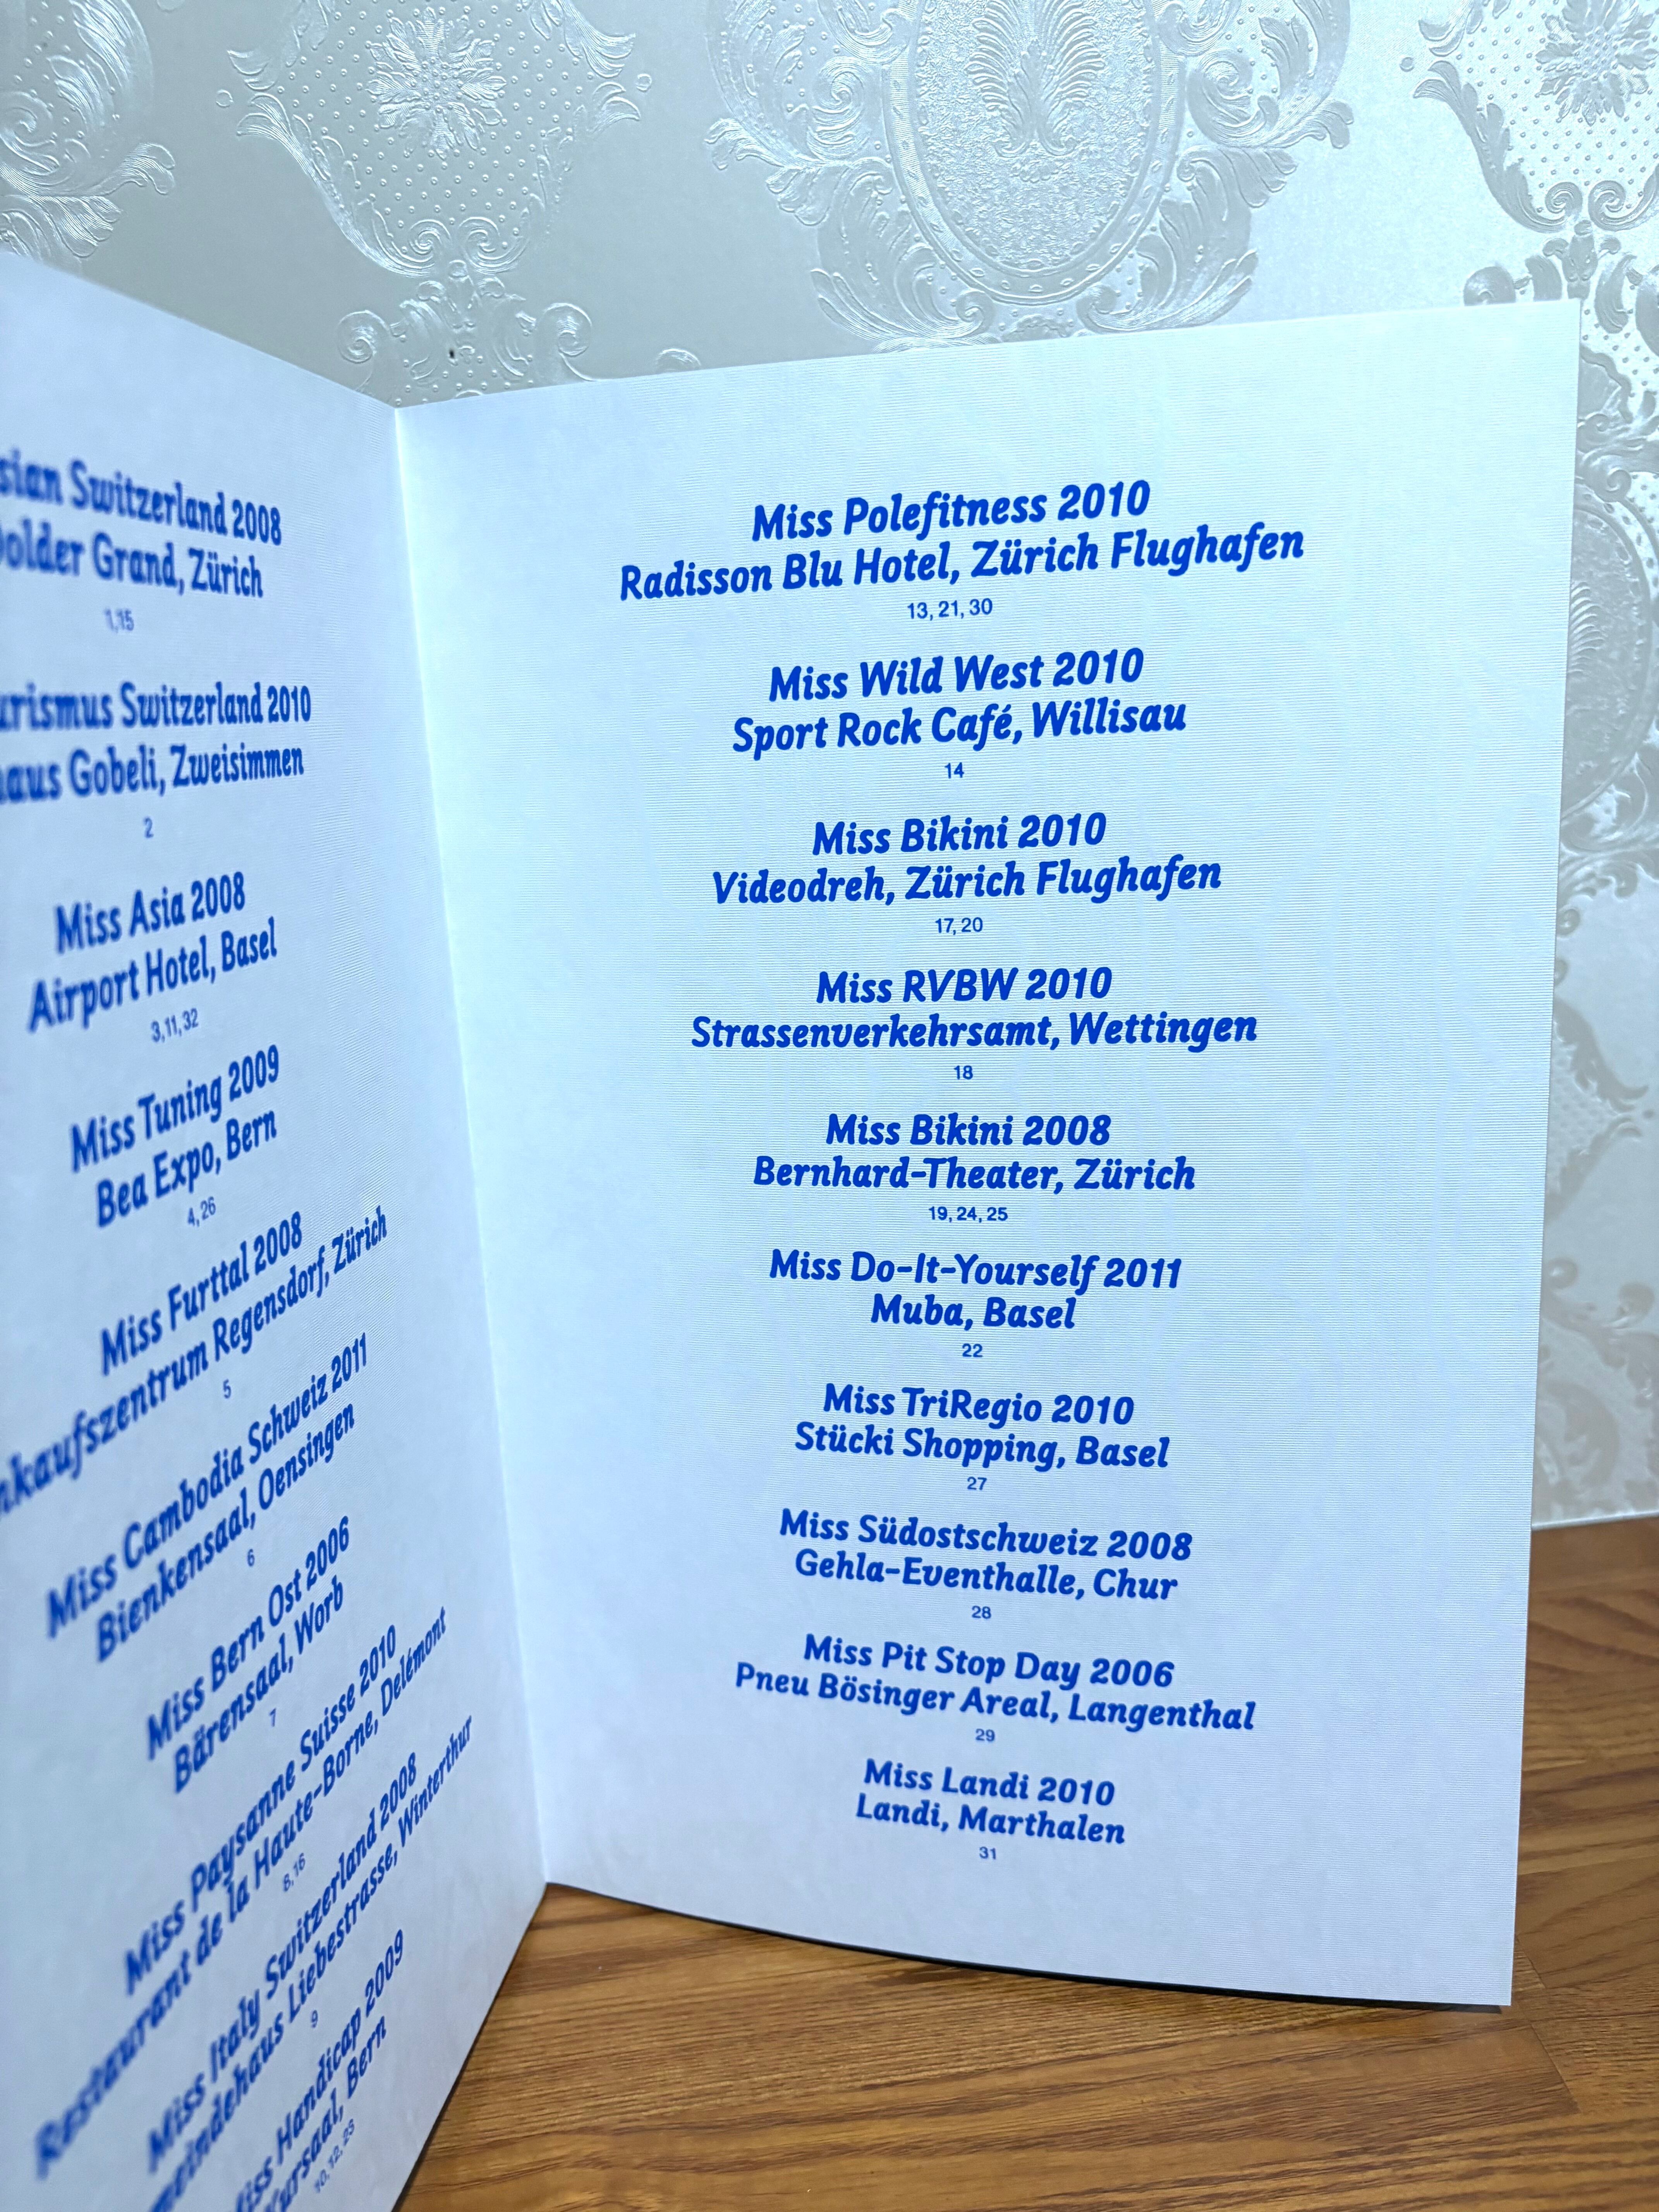 Switzerland 2008
Grand, Zürich
1,15
Switzerland 2010
Gobeli, Zweisimmen
2
Miss Asia 2008
Airport Hotel, Basel
3,11,32
Miss Tuning 2009
Bea Expo, Bern
4,26
Miss Furttal 2008
Regensdorf, Zürich
5
Miss Cambodia Schweiz 2011
Bienkensaal, Oensingen
6
Miss Bern Ost 2006
Bärensaal, Worb
7
Miss Paysanne Suisse 2010
Restaurant de la Haute-Borne, Delémont
8,16
Miss Italy Switzerland 2008
Liebestrasse, Winterthur
9
Handicap 2009
Bern
Miss Polefitness 2010
Radisson Blu Hotel, Zürich Flughafen
13, 21, 30
Miss Wild West 2010
Sport Rock Café, Willisau
14
Miss Bikini 2010
Videodreh, Zürich Flughafen
17, 20
Miss RVBW 2010
Strassenverkehrsamt, Wettingen
18
Miss Bikini 2008
Bernhard-Theater, Zürich
19, 24, 25
Miss Do-It-Yourself 2011
Muba, Basel
22
Miss TriRegio 2010
Stücki Shopping, Basel
27
Miss Südostschweiz 2008
Gehla-Eventhalle, Chur
28
Miss Pit Stop Day 2006
Pneu Bösinger Areal, Langenthal
29
Miss Landi 2010
Landi, Marthalen
31